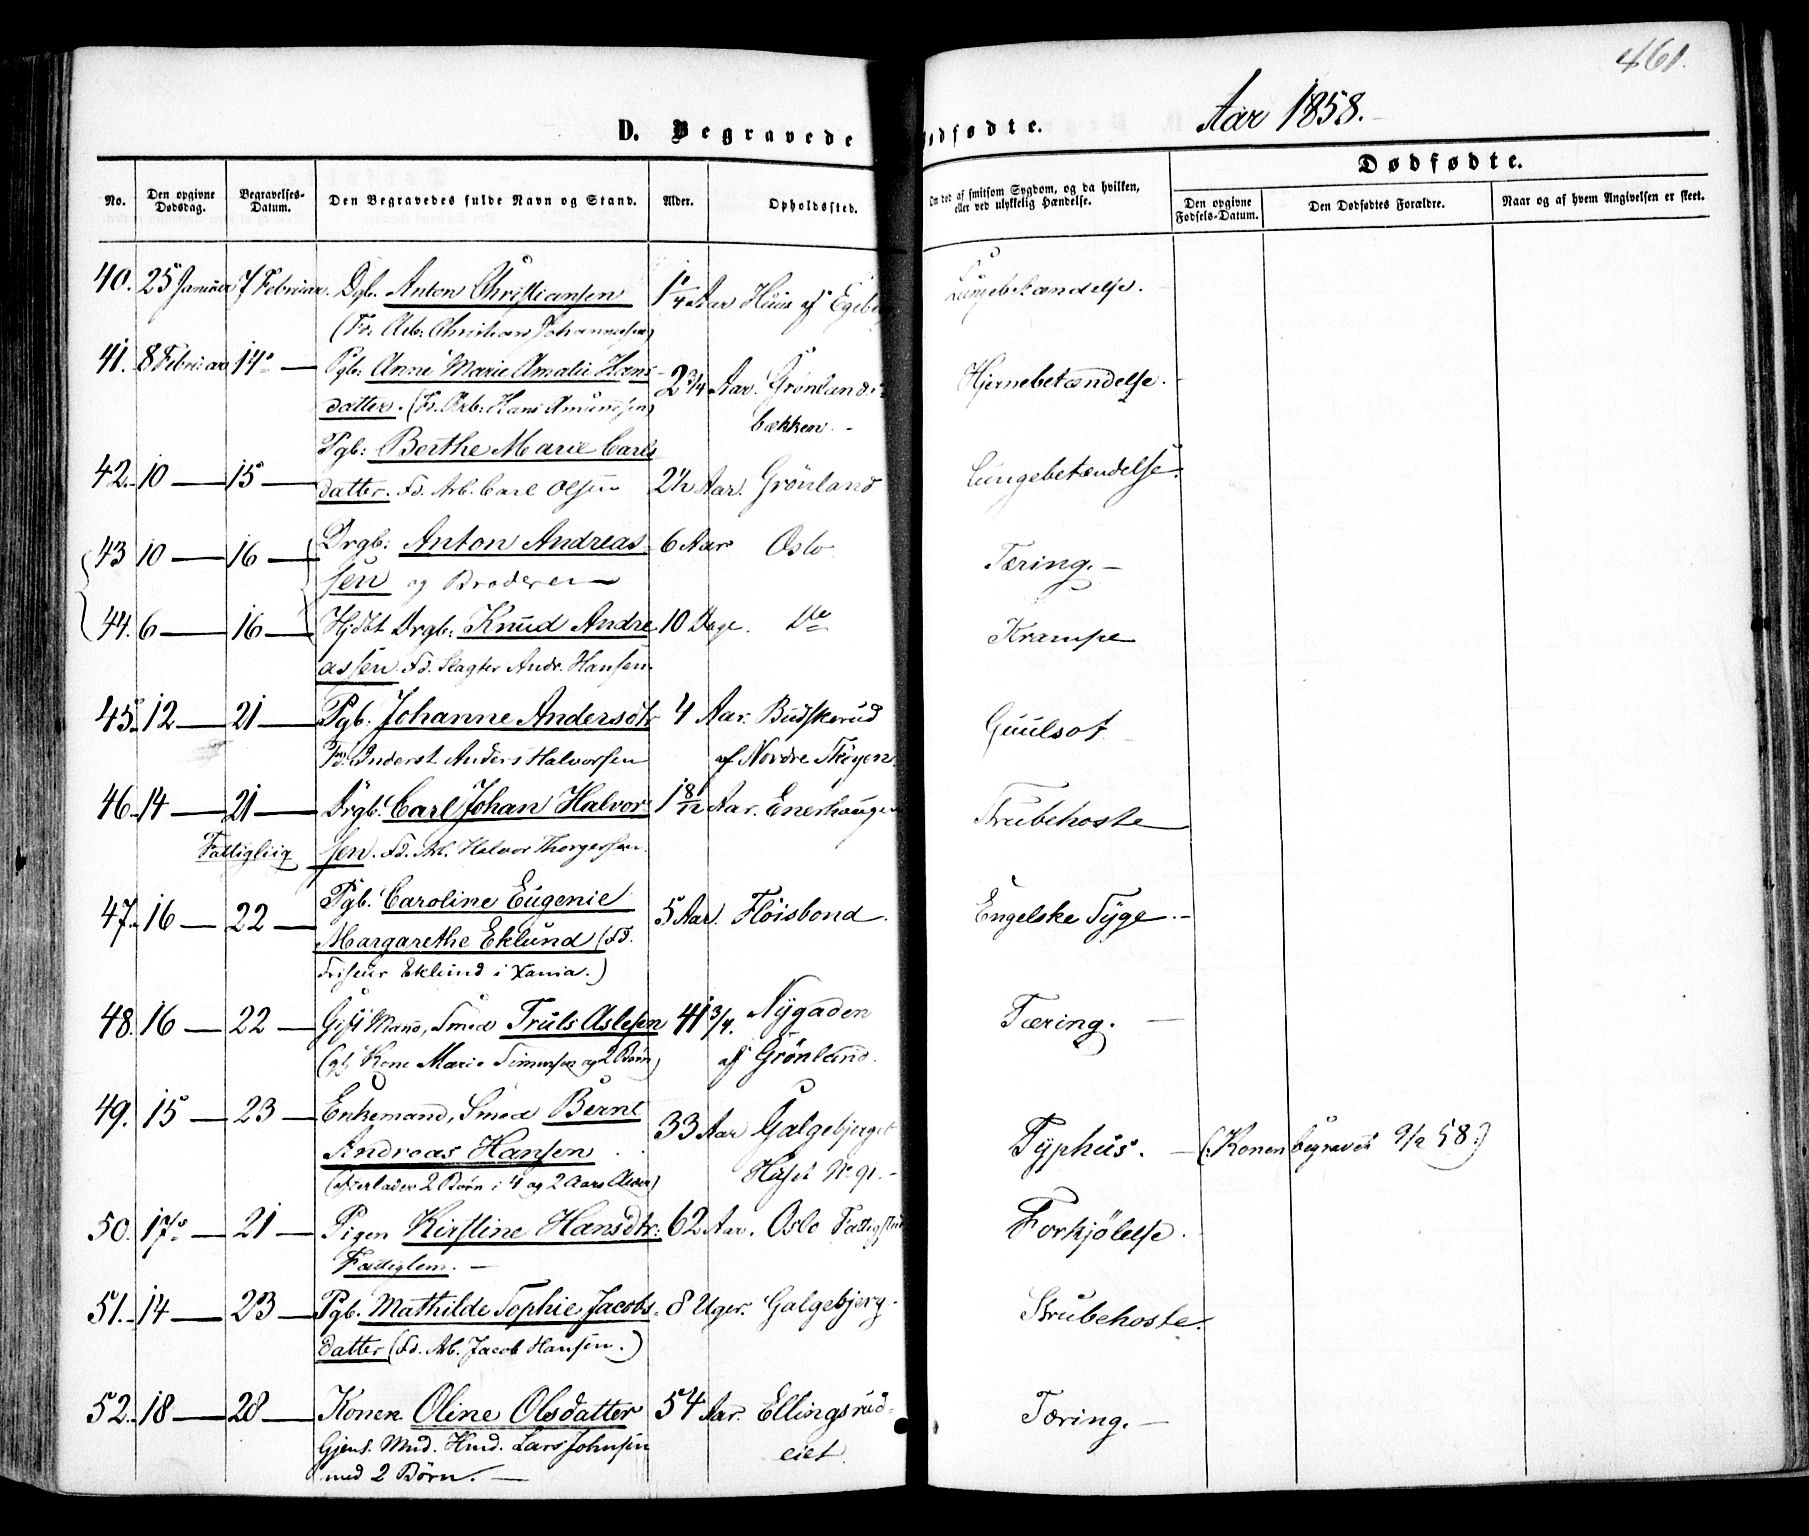 461.
Aar 1858.
D. Begravede
Dødfødte.
No.
Den opgivne Dødsdag.
Begravelses-Datum.
Den Begravedes fulde Navn og Stand.
Alder.
Opholdssted.
Om død af smitsom Sygdom, og da hvilken, eller ved ulykkelig Hændelse.
Den opgivne Fødsels-Datum.
Den Dødfødtes Forældre.
Naar og af hvem Angivelsen er skeet.
40. 25 Januar 7 Februar. Dgb. Anton Christiansen 1 1/4 Aar Huus af Egeberg Lungebetændelse.
(Fd. Arb: Christian Johannesen)
41. 8 Februar 14 — Pgb: Anne Marie Amalie Hans- 2 3/4 Aar. Grønlands- Hjernebetændelse. -
datter. (Fd. Arb: Hans Amundsen) bækken. -
Pgb: Berthe Marie Carls
42. 10 — 15 — datter. Fd. Arb. Carl Olsen 2 1/2 Aar. Grønland Lungebetændelse.
43 10 — 16 — Drgb: Anton Andreas- 6 Aar Oslo Tæring. —
sen og Broderen —
44. 6 — 16 — Hjdbt Drgb: Knud Andre 10 Dage. Do Krampe
assen Fd. Slagter Andr. Hansen.
45. 12 — 21 — Pgb. Johanne Andersdtr 4 Aar. Budskerud Guulsot
Fd. Inderst Anders Halvorsen af Nordre Skøyen.
46. 14 — 21 — Drgb. Carl Johan Halvor- 1 8/12 Aar. Enerhaugen Strubehoste
Fattigliig sen. Fd. Arb. Halvor Thorgersen.
47. 16 — 22 — Pgb. Caroline Eugenie 5 Aar. Fløisbond. Engelske Syge. -
Margarethe Eklund (Fd.
Friseur Eklund i Xania.)
48. 16 — 22 — Gift Mand, Smed Truls Aslesen 41 3/4. Nygaden Tæring. —
(gl. Kone Marie Simensen og 2 Børn) af Grønland.
49. 15 — 23 — Enkemand, Smed Bernt 33 Aar Galgebjerget Typhus. — (: Konen begravet 9/2 58:)
Andreas Hansen
(efterlader 2 Børn i 4 og 2 Aars Alder) Huset No 91. -
50. 17 — 21 — Pigen Kirstine Hansdtr: 62 Aar. Oslo Fattigstue Forkjølelse.
Fattiglem. —
51. 14 — 23 — Pgb. Mathilde Sophie Jacobs- 8 Uger. Galgebjerg. Strubehoste.
datter (Fd. Arb. Jacob Hansen.)
52. 18 — 28 — Konen Oline Olsdatter 54 Aar. Ellingsrud- Tæring. —
Gjens. Mnd. Hmd. Lars Johnsen eiet.
med 2 Børn. —